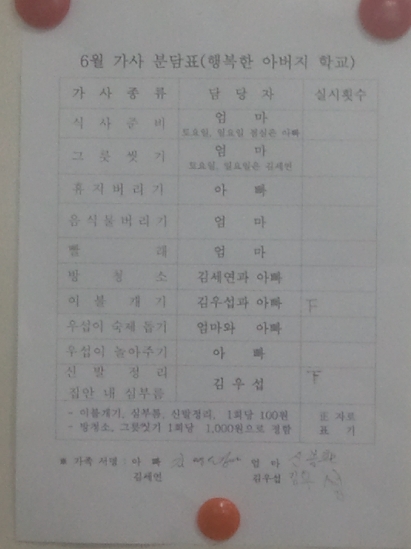 6월 가사 분담표(행복한 아버지 학교)
가 사 종 류 담 당 자 실시횟수
식 사 준 비 엄 마
토요일, 일요일 점심은 아빠
그 릇 씻 기 엄 마
토요일, 일요일은 김세연
휴 지 버 리 기 아 빠
음 식 물 버 리 기 엄 마
빨 래 엄 마
방 청 소 김세연과 아빠
이 불 개 기 김우섭과 아빠 F
우섭이 숙제 돕기 엄마와 아빠
우섭이 놀아주기 아 빠
신 발 정 리
집안 내 심부름 김 우 섭 F
- 이불개기, 심부름, 신발정리, 1회당 100원
- 방청소, 그릇씻기 1회당 1,000원으로 정함
正 자로
표 기
※ 가족 서명 : 아 빠 엄 마
김세연 김우섭